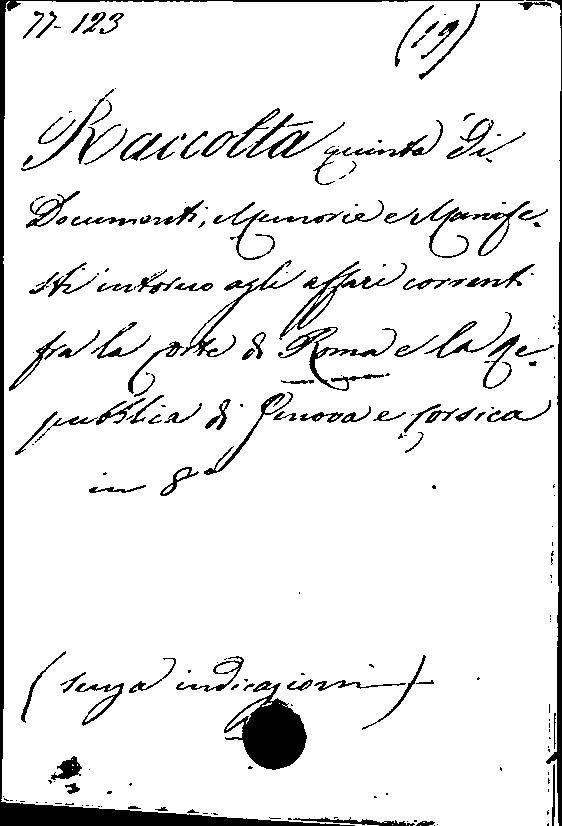 77-123
(19)
Raccolta quinta di
Documenti, Memorie e Manife-
sti intorno agli affari correnti
fra la corte di Roma e la Re-
pubblica di Genova e Corsica
in 8º
(senza indicazioni)